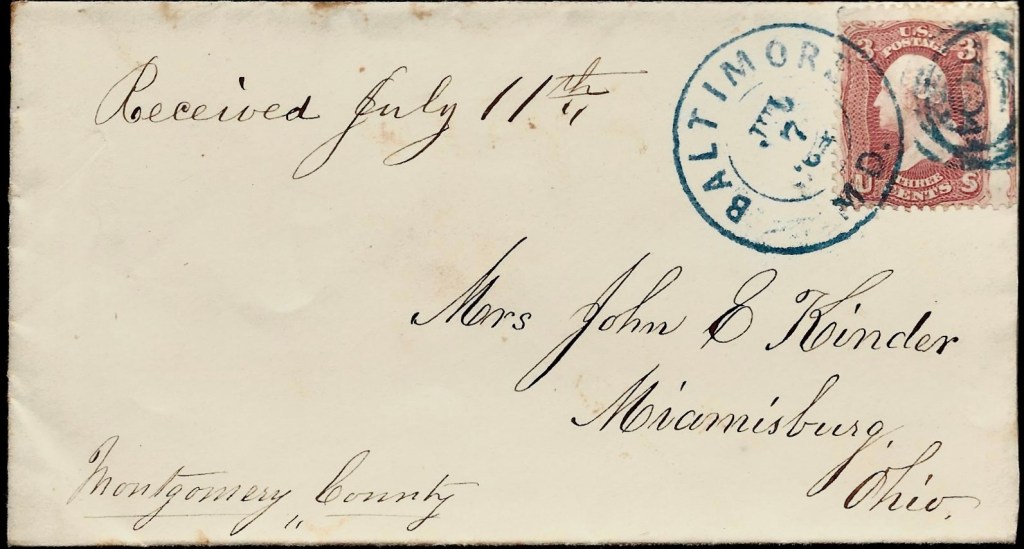 Received July 11th
BALTIMORE MD.
JUL
7
'64
U.S.
POSTAGE
3 3
THREE
CENTS
U S
Mrs John E Kinder
Miamisburg,
Ohio.
Montgomery County